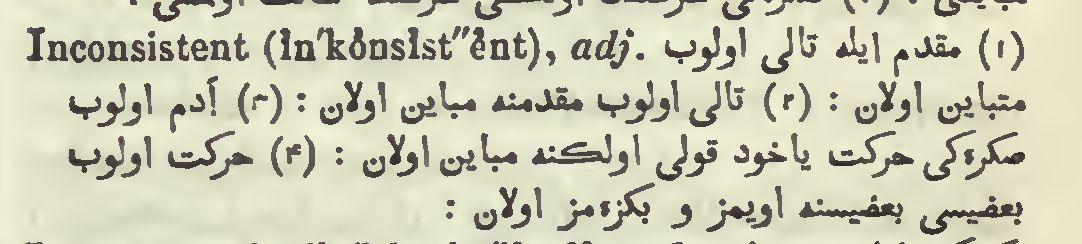 Inconsistent (ĭn′kŏnsĭst″ĕnt), adj. (١) مقدم ايله تالى اولوب
متباين اولان : (٢) تالى اولوب مقدمنه مباين اولان : (٣) آدم اولوب
صكره‌كى حركت ياخود قولى اولكنه مباين اولان : (۴) حركت اولوب
بعضيسى بعضيسنه اويمز و بكزه‌مز اولان :